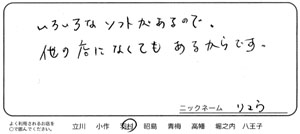 いろいろなソフトがあるので。
他の店になくてもあるからです。
ニックネーム りょう
よく利用されるお店を
○で囲んでください。
立川 小作 羽村 昭島 青梅 高幡 堀之内 八王子